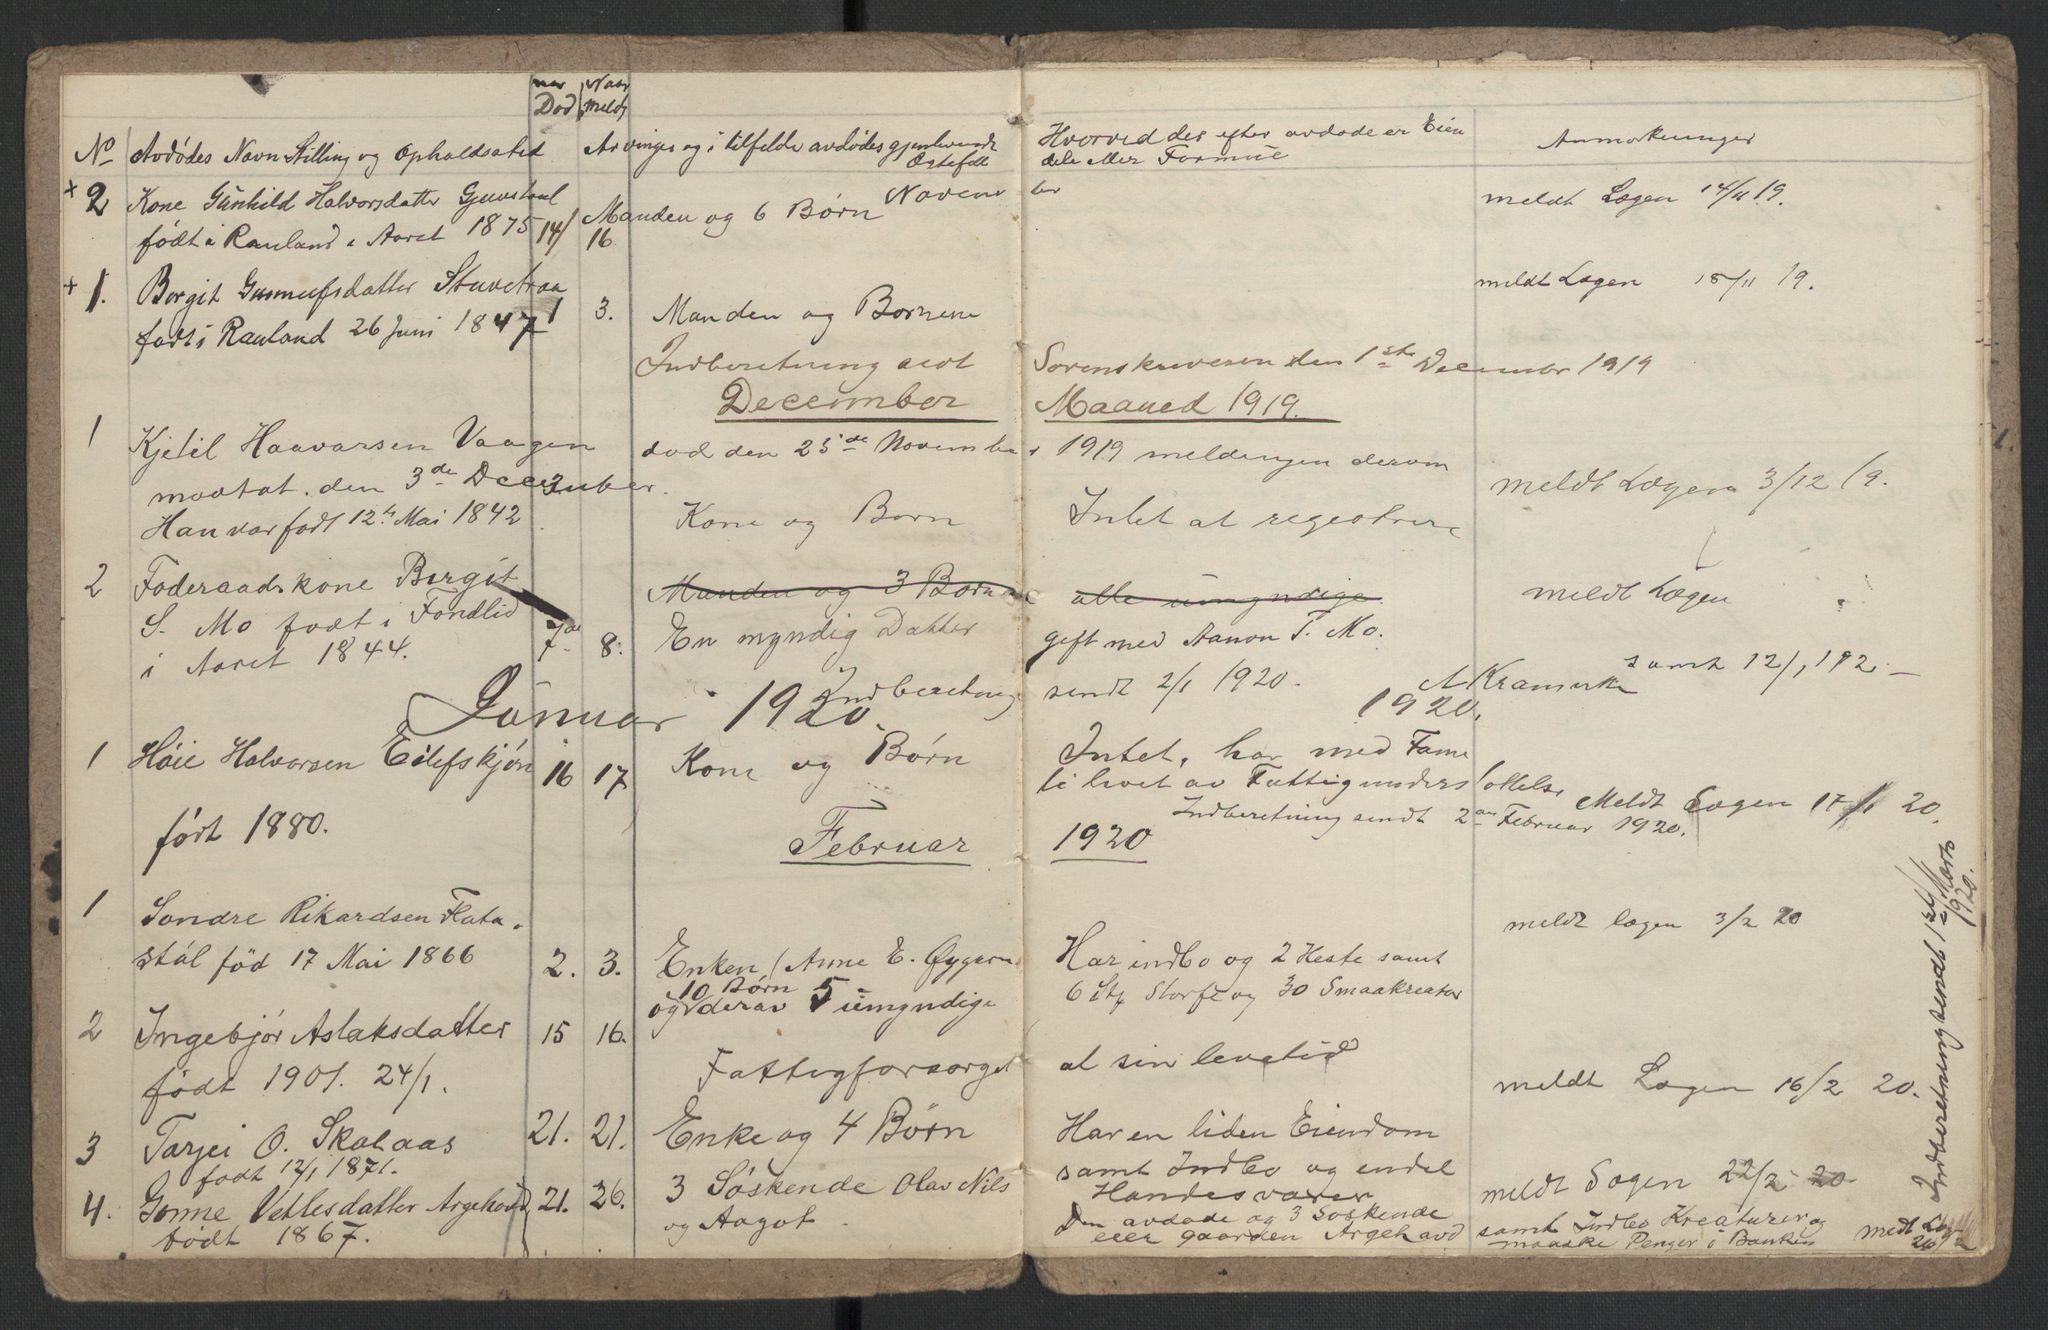 Naar Død
Naar meldt
No Avdødes Navn Stilling og Opholdssted
Arvinger og i tilfelde avdødes gjenlevende Ægtefelle
Hvorved der efter avdøde er Eien
dele eller Formue
Anmerkninger
November
+ 2 Kone Gunhild Halvorsdatter Gjuvstaul
født i Rauland i Aaret 1875 14/ 16
Manden og 6 Børn
meldt Lægen 14/11 19.
+ 1. Borgit Gunnulfsdatter Stuvetraa
født i Rauland 26 Juni 1847 1 3.
Manden og Børnene
meldt Lægen 18/11 19.
Indberetning sent Sorenskriveren den 1ste December 1919
December Maaned 1919.
1 Kjetil Haavarsen Vaagen død den 25de November 1919 meldingen derom
mottat. den 3de December.
meldt Lægen 3/12 19.
Han var født 12te Mai 1842 Kone og Børn Intet at registrere
2 Føderaadskone Bergit
Manden og 3 Børn alle umyndige.
meldt Lægen
S. Mo født i Fondlid
7de 8. En myndig Datter gift med Aanon T. Mo.
i Aaret 1844.
samt 12/1 192
Indberetning sendt 2/1 1920.
Januar 1920. 1920.
1 Høie Halvorsen Eilefskjøn 16 17. Kone og Børn
Intet, har med Fami
li levet av Fattigunderstøttelse Meldt Lægen 17/1 20.
født 1880.
Indberetning sendt 2den Februar 1920.
Februar 1920
1 Sondre Rikardsen Flata
støl fød 17 Mai 1866 2. 3.
Enken (Anne E. Øygarn
og 10 Børn derav 5 umyndige
Har indbo og 2 Heste samt
6 Stk Storfe og 30 Smaakreatur
meldt lægen 3/2 20
2 Ingebjør Aslaksdatter 15 16.
født 1901. 24/1.
Fattigforsørget al sin levetid
meldt Lægen 16/2 20.
3 Tarjei O. Skalaas 21. 21. Enke og 4 Børn
født 12/1 1871.
Har en liden Eiendom
samt Indbo og endel
Handesvarer
meldt Lægen 22/2 20
4. Gonne Vetlesdatter Argehovd 21. 26. 3 Søskende Olav Nils
født 1867. og Aagot.
Den avdøde og 3 Søskende
eier gaarden Argehovd
samt Indbo Kreaturer og
maaske Penger i Banken
meldt 26/2
Indberetning sendt 1st/Marts 1920.
1.